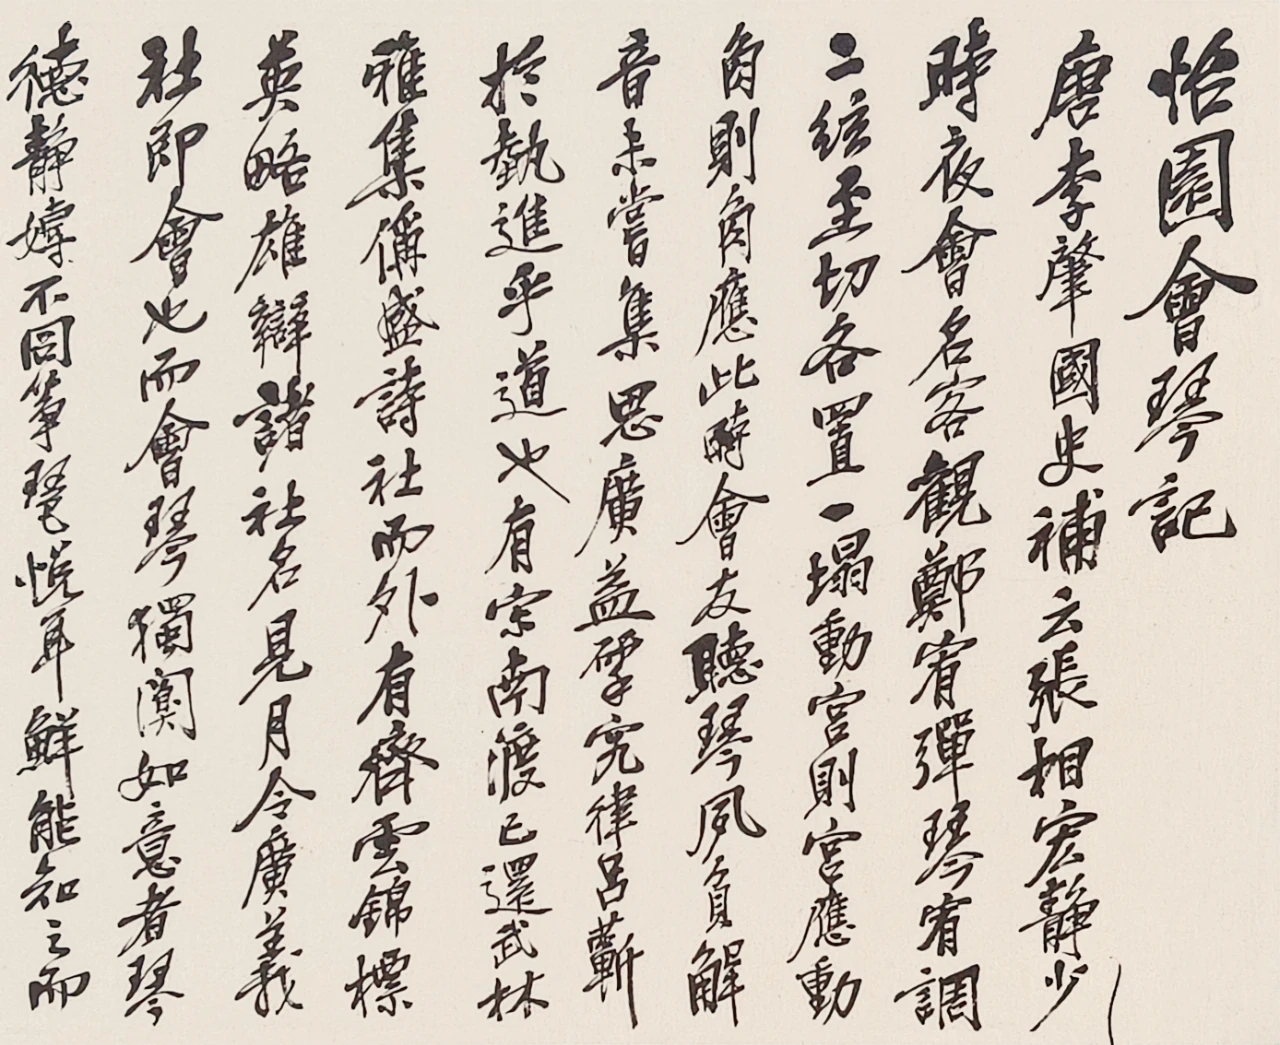 怡園會琴記
唐李肇國史補云張相宏靜少
時夜會名客觀鄭宥彈琴宥調
二絃至切各置一塌動宮則宮應動
角則角應此時會友聽琴夙負解
音未嘗集思廣益揅究律呂蘄
於埶進乎道也有宋南渡已還武林
雅集偁盛詩社而外有齊雲錦標
英略雄辯諸社名見月令廣義
社即會也而會琴獨闃如意者琴
德靜嫥不同箏琶悅耳鮮能知之而